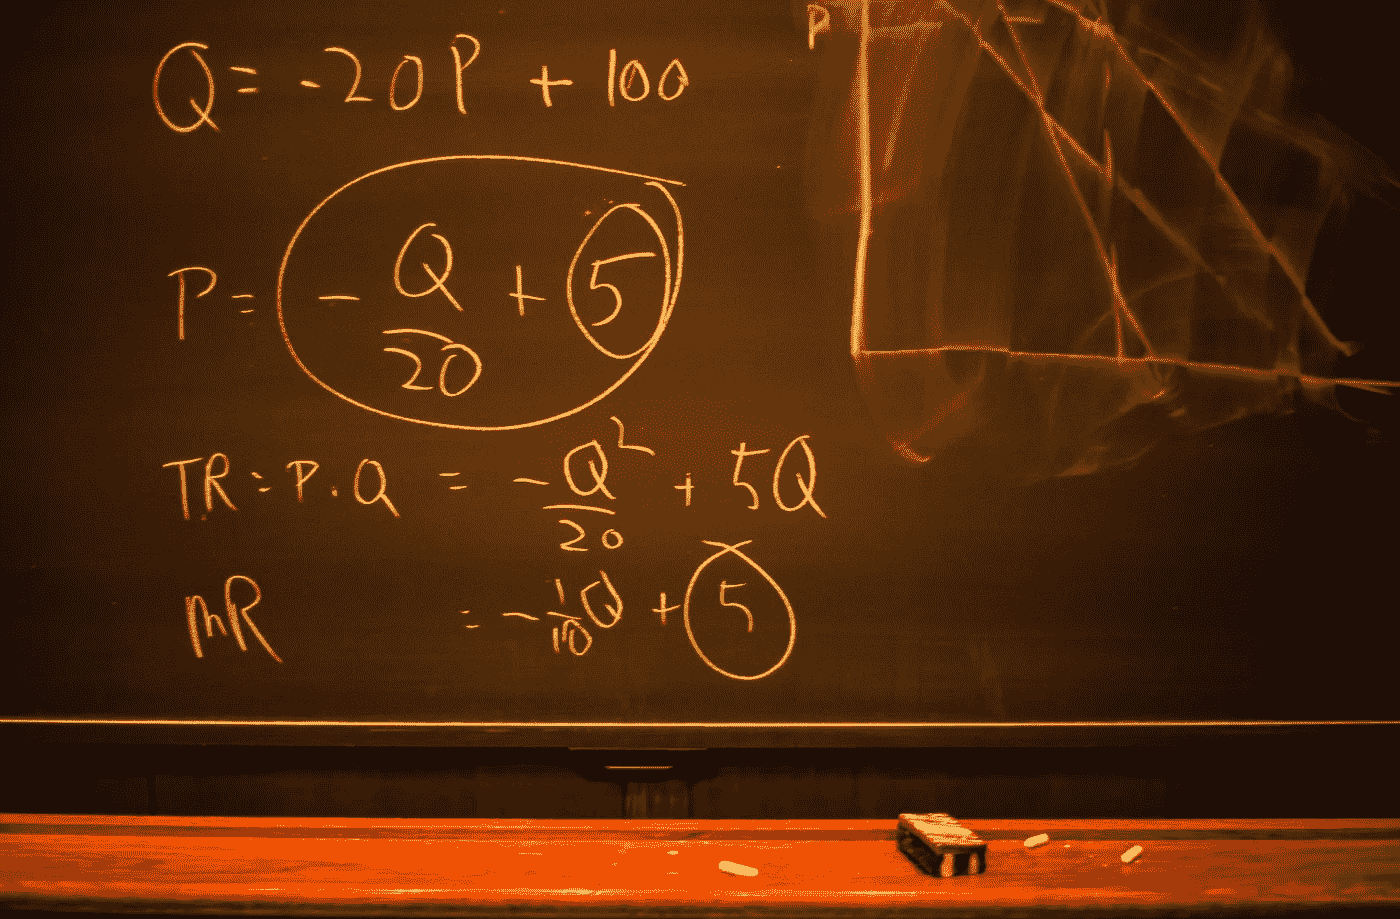 Q = -20P + 100
P = - Q/20 + 5
TR = P.Q = -Q²/20 + 5Q
MR = -1/10 Q + 5
P